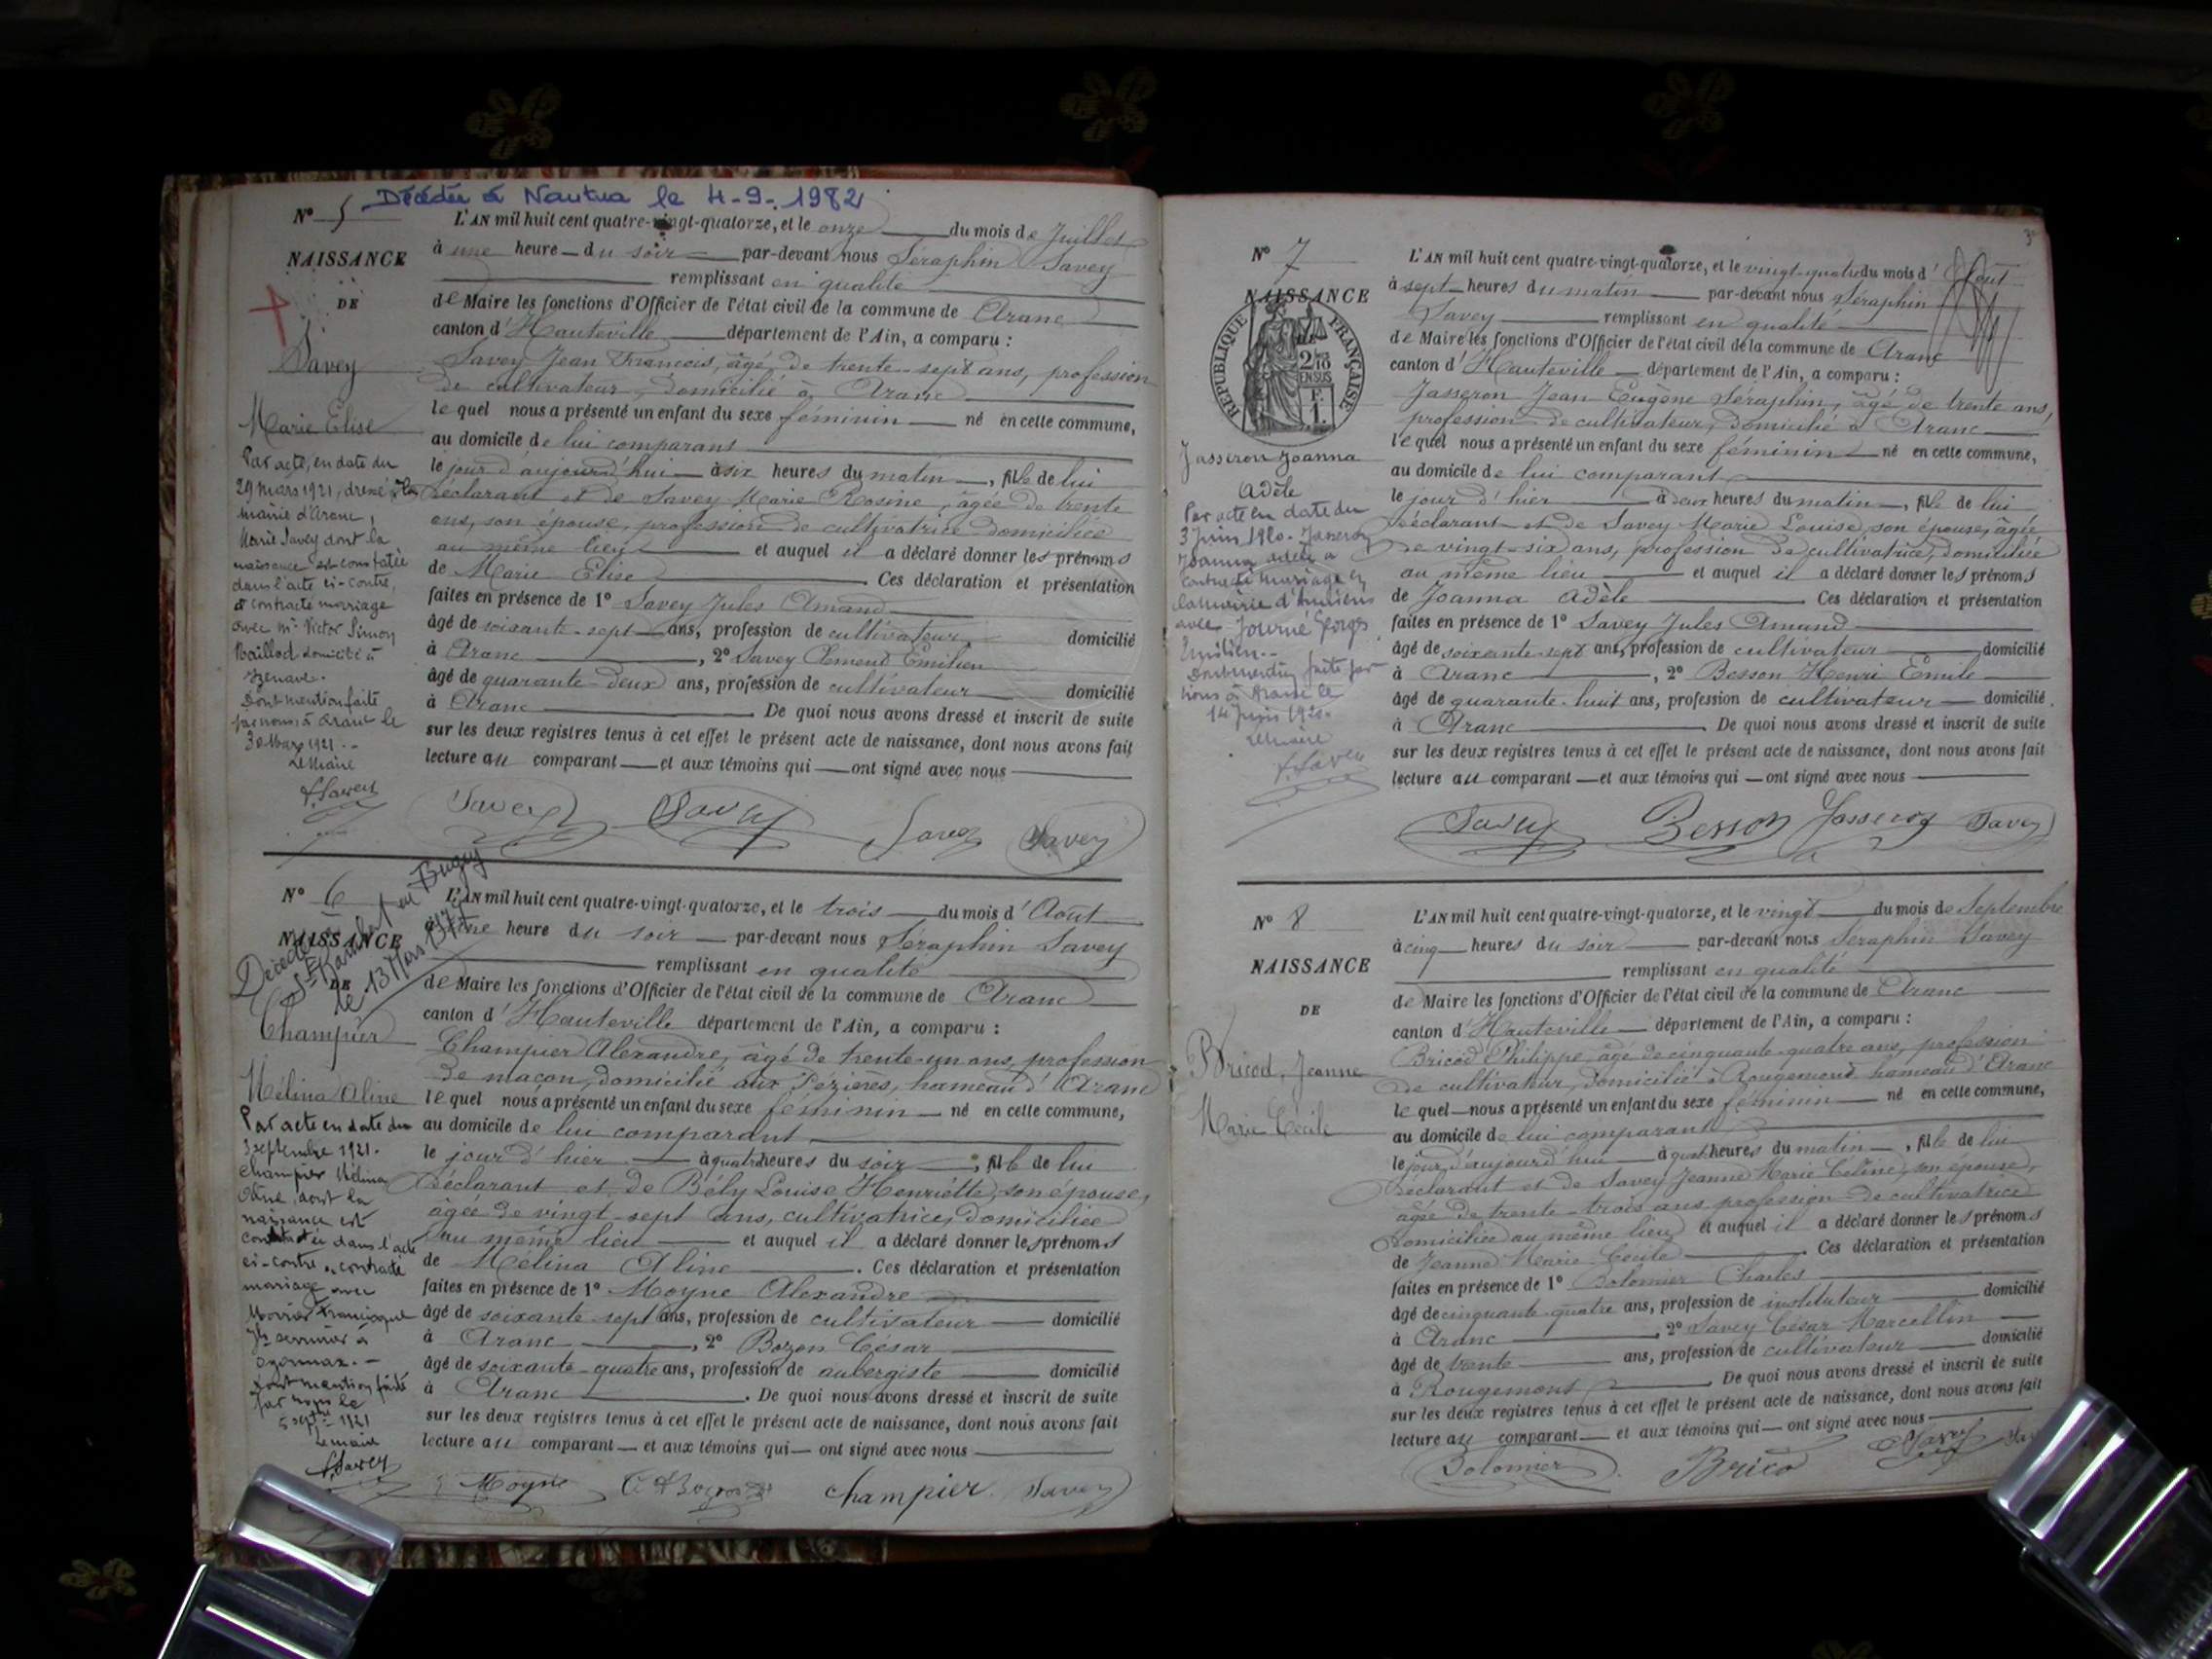 Décédée à Nantua le 4-9-1982
N° 5
NAISSANCE
DE
Savey
Marie Elise
Par acte, en date du
29 mars 1921, dressé à la
mairie d'Aranc,
Marie Savey dont la
naissance est constatée
dans l'acte ci-contre,
a contracté mariage
avec Mr Victor Simon
Maillod domicilié à
Izenave.
Dont mention faite
par nous à Aranc le
30 Mars 1921.
Le Maire
Savey
L'AN mil huit cent quatre-vingt-quatorze, et le onze du mois de Juillet
à une heure du soir par-devant nous Séraphin Savey
remplissant en qualité
de Maire les fonctions d'Officier de l'état civil de la commune de Aranc
canton d'Hauteville département de l'Ain, a comparu :
Savey Jean François, âgé de trente-sept ans, profession
de cultivateur, domicilié à Aranc
lequel nous a présenté un enfant du sexe féminin né en cette commune,
au domicile de lui comparant
le jour d'aujourd'hui à six heures du matin, fille de lui
déclarant et de Savey Marie Rosine, âgée de trente
ans, son épouse, profession de cultivatrice domiciliée
au même lieu et auquel il a déclaré donner les prénoms
de Marie Elise. Ces déclaration et présentation
faites en présence de 1° Savey Jules Amand
âgé de soixante-sept ans, profession de cultivateur domicilié
à Aranc, 2° Savey Clément Emilien
âgé de quarante-deux ans, profession de cultivateur domicilié
à Aranc. De quoi nous avons dressé et inscrit de suite
sur les deux registres tenus à cet effet le présent acte de naissance, dont nous avons fait
lecture au comparant et aux témoins qui ont signé avec nous
Savey Savey Savey Savey
N° 6
NAISSANCE
DE
Décédée à
St Rambert en Bugey
le 13 Mars
Champier
Mélina Aline
Par acte en date du
3 septembre 1921.
Champier Mélina
Aline dont la
naissance est
constatée dans l'acte
ci-contre a contracté
mariage avec
Francisque
à
Oyonnax.
Dont mention faite
par nous le
5 sept 1921
Le maire
Savey
L'AN mil huit cent quatre-vingt-quatorze, et le trois du mois d'Août
à une heure du soir par-devant nous Séraphin Savey
remplissant en qualité
de Maire les fonctions d'Officier de l'état civil de la commune de Aranc
canton d'Hauteville département de l'Ain, a comparu :
Champier Alexandre, âgé de trente-un ans, profession
de maçon, domicilié aux Pézières, hameau d'Aranc
lequel nous a présenté un enfant du sexe féminin né en cette commune,
au domicile de lui comparant
le jour d'hier à quatre heures du soir, fille de lui
déclarant et de Bély Louise Henriette, son épouse,
âgée de vingt-sept ans, cultivatrice, domiciliée
au même lieu et auquel il a déclaré donner les prénoms
de Mélina Aline. Ces déclaration et présentation
faites en présence de 1° Moyne Alexandre
âgé de soixante-sept ans, profession de cultivateur domicilié
à Aranc, 2° Bozon César
âgé de soixante-quatre ans, profession de aubergiste domicilié
à Aranc. De quoi nous avons dressé et inscrit de suite
sur les deux registres tenus à cet effet le présent acte de naissance, dont nous avons fait
lecture au comparant et aux témoins qui ont signé avec nous
Moyne Champier Savey
N° 7
NAISSANCE
RÉPUBLIQUE FRANÇAISE
2/10 EN SUS
Jasseron Joanna
Adèle
Par acte en date du
3 Juin 1920. Jasseron
Joanna adèle a
contracté mariage en
la mairie d'
avec Journé Georges
Emilien.
Dont mention faite par
nous à Aranc le
14 Juin 1920.
Le Maire
Savey
L'AN mil huit cent quatre-vingt-quatorze, et le vingt-quatre du mois d'Août
à sept heures du matin par-devant nous Séraphin
Savey remplissant en qualité
de Maire les fonctions d'Officier de l'état civil de la commune de Aranc
canton d'Hauteville département de l'Ain, a comparu :
Jasseron Jean Eugène Séraphin, âgé de trente ans,
profession de cultivateur, domicilié à Aranc
lequel nous a présenté un enfant du sexe féminin né en cette commune,
au domicile de lui comparant
le jour d'hier à deux heures du matin, fille de lui
déclarant et de Savey Marie Louise, son épouse, âgée
de vingt-six ans, profession de cultivatrice, domiciliée
au même lieu et auquel il a déclaré donner les prénoms
de Joanna Adèle. Ces déclaration et présentation
faites en présence de 1° Savey Jules Amand
âgé de soixante-sept ans, profession de cultivateur domicilié
à Aranc, 2° Besson Henri Emile
âgé de quarante-huit ans, profession de cultivateur domicilié
à Aranc. De quoi nous avons dressé et inscrit de suite
sur les deux registres tenus à cet effet le présent acte de naissance, dont nous avons fait
lecture au comparant et aux témoins qui ont signé avec nous
Savey Besson Jasseron Savey
N° 8
NAISSANCE
DE
Bricod, Jeanne
Marie Cécile
L'AN mil huit cent quatre-vingt-quatorze, et le vingt du mois de Septembre
à cinq heures du soir par-devant nous Séraphin Savey
remplissant en qualité
de Maire les fonctions d'Officier de l'état civil de la commune de Aranc
canton d'Hauteville département de l'Ain, a comparu :
Bricod Philippe, âgé de cinquante-quatre ans, profession
de cultivateur, domicilié à Rougemont hameau d'Aranc
lequel nous a présenté un enfant du sexe féminin né en cette commune,
au domicile de lui comparant
le jour d'aujourd'hui à quatre heures du matin, fille de lui
déclarant et de Savey Jeanne Marie Céline, son épouse,
âgée de trente-trois ans profession de cultivatrice
domiciliée au même lieu et auquel il a déclaré donner les prénoms
de Jeanne Marie Cécile. Ces déclaration et présentation
faites en présence de 1° Bolomier Charles
âgé de cinquante-quatre ans, profession de instituteur domicilié
à Aranc, 2° Savey César Marcellin
âgé de trente ans, profession de cultivateur domicilié
à Rougemont. De quoi nous avons dressé et inscrit de suite
sur les deux registres tenus à cet effet le présent acte de naissance, dont nous avons fait
lecture au comparant et aux témoins qui ont signé avec nous
Bolomier Brico Savey